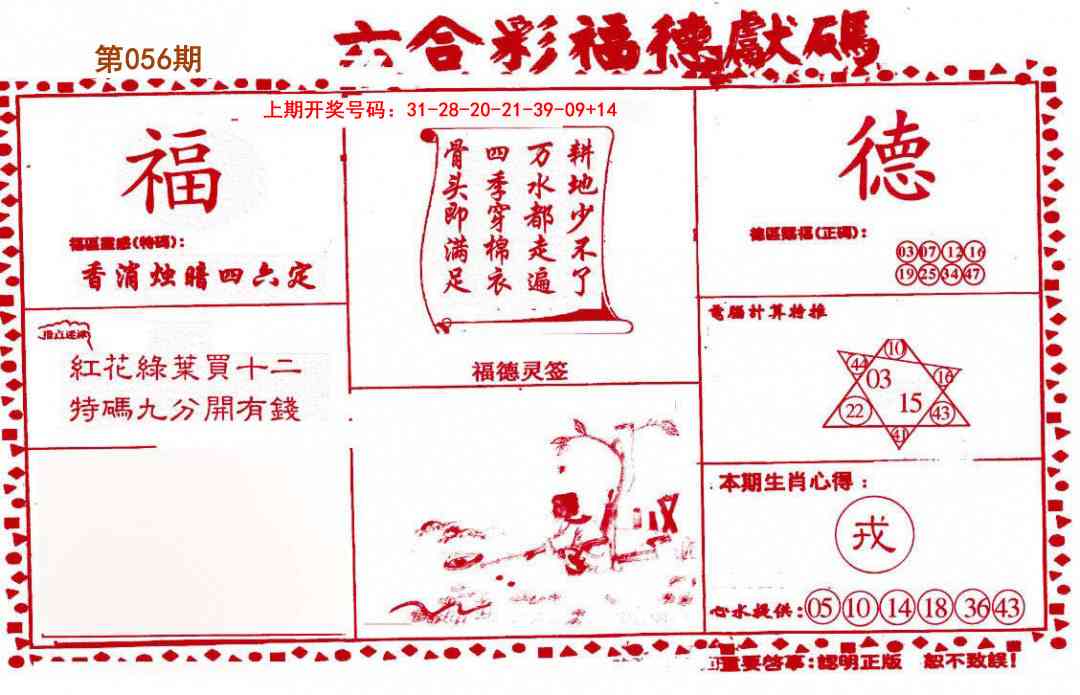 第056期
六合彩福德獻碼
上期开奖号码：31-28-20-21-39-09+14
福
福區靈感(特碼):
香消烛暗四六定
紅花綠葉買十二
特碼九分開有錢
耕地少不了
万水都走遍
四季穿棉衣
骨头即满足
福德灵签
德
德區賜福(正碼):
03 07 12 16
19 25 34 47
電腦計算特推
10
44 03 16
22 15 43
41
本期生肖心得:
戎
心水提供:05 10 14 18 36 43
重要啓事:認明正版 恕不致誤!